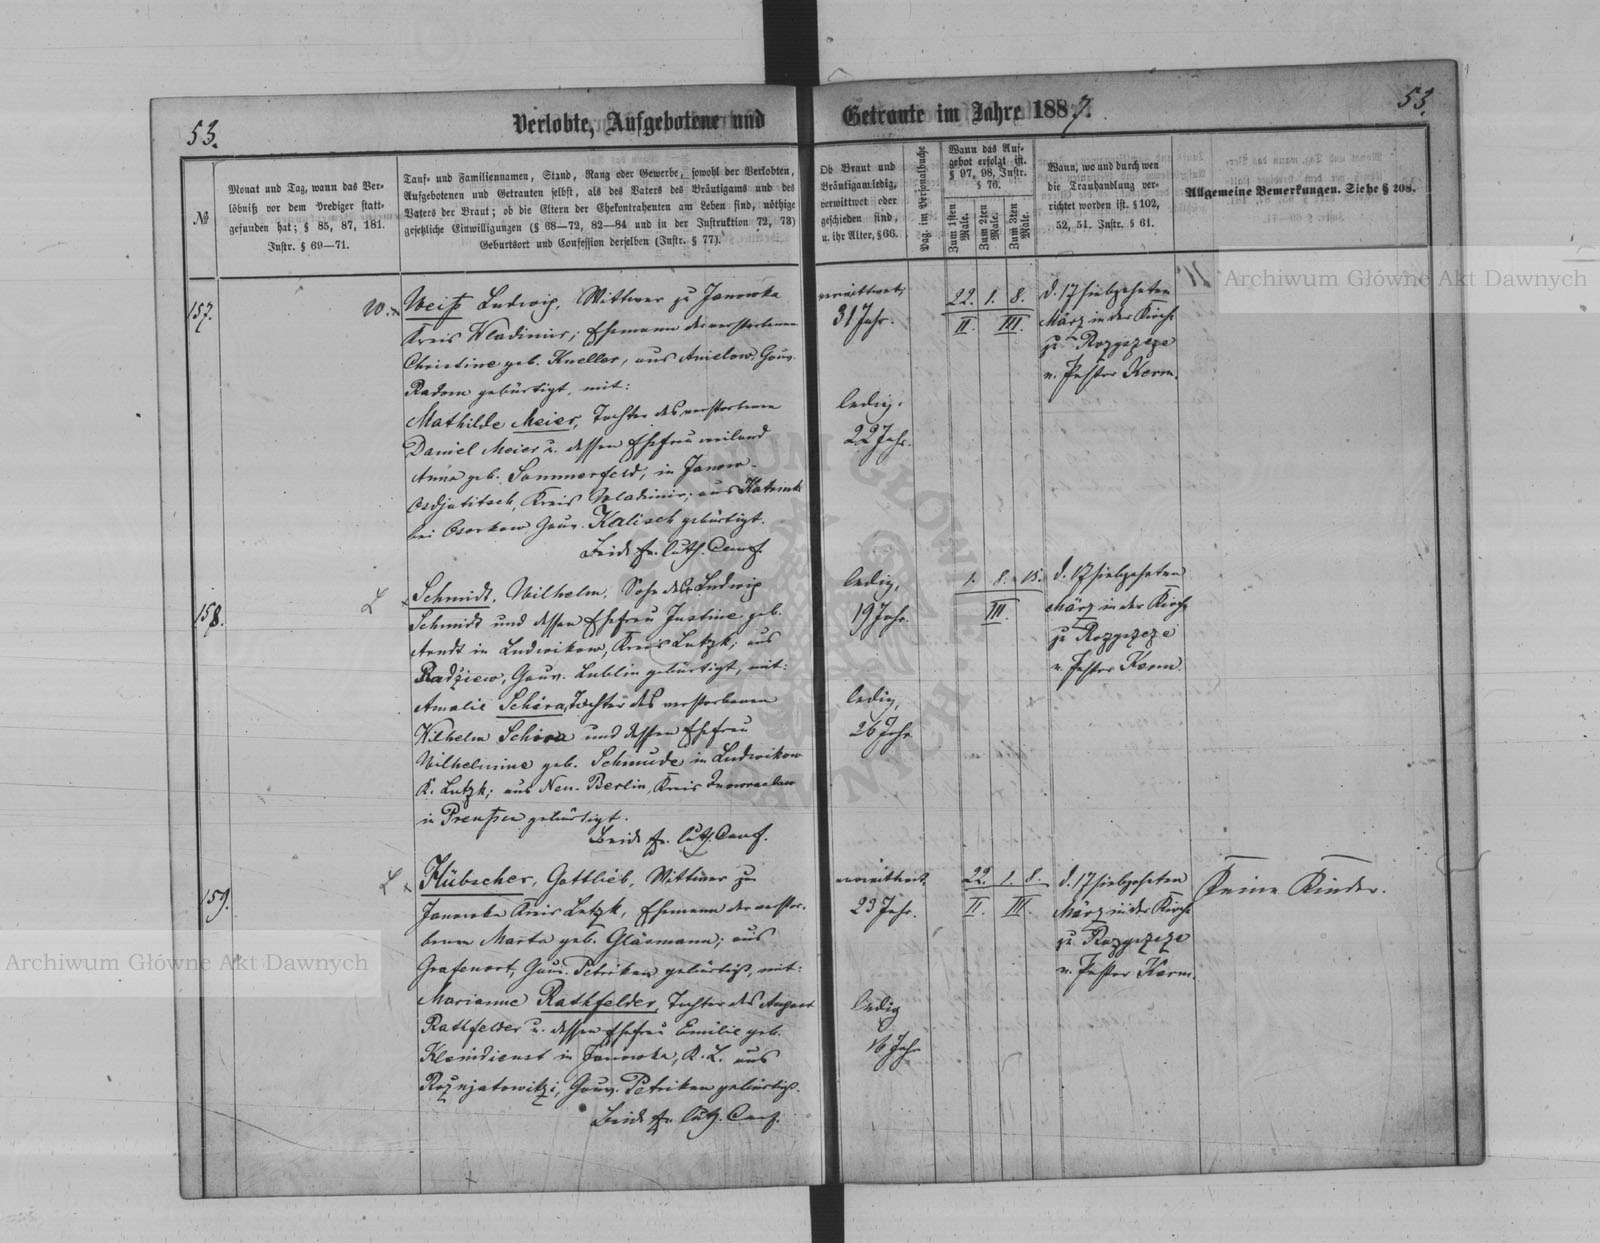 53.
Verlobte, Aufgebotene und
Getraute im Jahre 1887.
53.
№
Monat und Tag, wann das Ver-
löbniß vor dem Prediger statt-
gefunden hat; § 85, 87, 181.
Instr. § 69—71.
Tauf- und Familiennamen, Stand, Rang oder Gewerbe, sowohl der Verlobten,
Aufgebotenen und Getrauten selbst, als des Vaters des Bräutigams und des
Vaters der Braut; ob die Eltern der Ehekontrahenten am Leben sind, nöthige
gesetzliche Einwilligungen (§ 68—72, 82—84 und in der Instruktion 72, 73)
Geburtsort und Confession derselben (Instr. § 77).
Ob Braut und
Bräutigam ledig,
verwittwet oder
geschieden sind,
u. ihr Alter, § 66.
Pag. im Personalbuche
Wann das Auf-
gebot erfolgt ist.
§ 97, 98, Instr.
§ 76.
Zum 1sten Male.
Zum 2ten Male.
Zum 3ten Male.
Wann, wo und durch wen
die Trauhandlung ver-
richtet worden ist. § 102,
52, 51. Instr. § 61.
Allgemeine Bemerkungen. Siehe § 208.
Archiwum Główne Akt Dawnych
157.
W.
Weiß Ludwig, Wittwer zu Janowka
Kreis Wladimir; Ehemann der verstorbenen
Christine geb. Kneller, aus Amelow Gouv.
Radom gebürtigt, mit:
Mathilde Meier, Tochter des verstorbenen
Daniel Meier u. dessen Ehefrau weiland
Anna geb. Sommerfeld, in Janow-
Osdjutitsch, Kreis Wladimir; aus
bei Osorkow Gouv. Kalisch gebürtigt.
Beide ev. luth. Conf.
verwittwet,
31 Jahr.
ledig,
22 Jahr.
22. 1. 8.
II. III.
d. 17 siebzehnten
März in der Kirche
zu Rozyszcze
v. Pastor Kerm.
158.
L
Schmidt, Wilhelm, Sohn des Ludwig
Schmidt und dessen Ehefrau Justine geb.
Arndt in Ludwikow, Kreis Lutzk; aus
Radziew, Gouv. Lublin gebürtigt, mit:
Amalie Schira, Tochter des verstorbenen
Wilhelm Schira und dessen Ehefrau
Wilhelmine geb. Schmude in Ludwikow
K. Lutzk; aus Neu-Berlin, Kreis Inowraclaw
in Preußen gebürtigt.
Beide ev. luth. Conf.
ledig,
19 Jahr.
ledig,
26 Jahr
1. 8. 15.
III.
d. 17 siebzehnten
März in der Kirche
zu Rozyszcze
v. Pastor Kerm
159.
L
Hübscher, Gottlieb, Wittwer zu
Janowka Kreis Lutzk, Ehemann der verstor-
benen Marta geb. Gläsmann; aus
Grafenort, Gouv. Petrikau gebürtigt, mit:
Marianne Rathfelder, Tochter des August
Rathfelder u. dessen Ehefrau Emilie geb.
Kleindienst in Janowka, K. L. aus
Roznjatowitzi, Gouv. Petrikau gebürtigt.
Beide ev. luth. Conf.
verwittwet,
23 Jahr.
ledig
16 Jahr
22. 1. 8.
II. III.
d. 17 siebzehnten
März in der Kirche
zu Rozyszcze
v. Pastor Kerm.
Keine Kinder.
Archiwum Główne Akt Dawnych